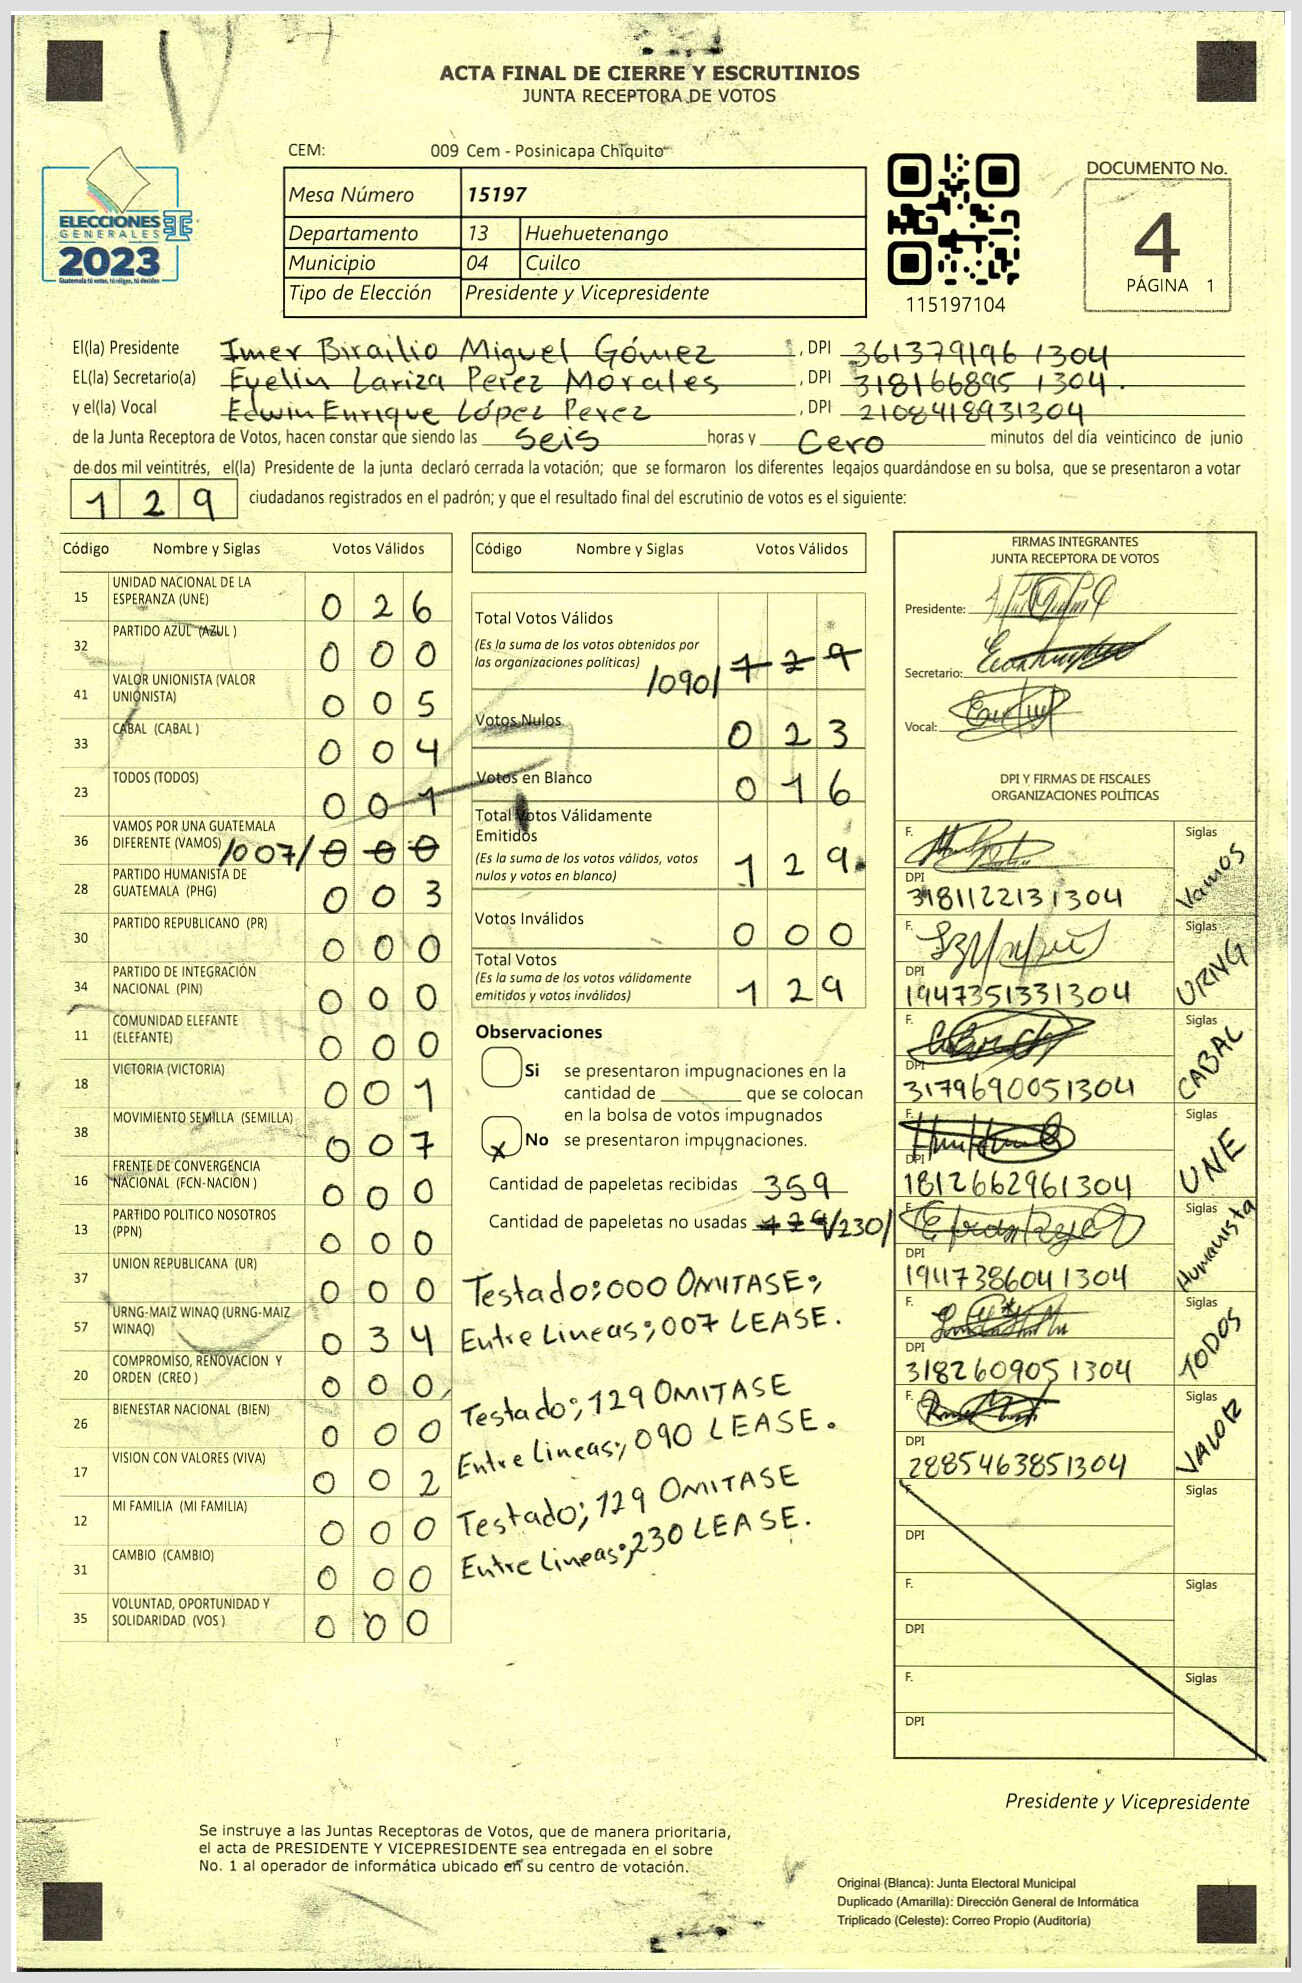 ACTA FINAL DE CIERRE Y ESCRUTINIOS
JUNTA RECEPTORA DE VOTOS
CEM: 009 Cem - Posinicapa Chiquito
Mesa Número 15197
Departamento 13 Huehuetenango
Municipio 04 Cuilco
Tipo de Elección Presidente y Vicepresidente
ELECCIONES
GENERALES
2023
Guatemala tú votas, tú eliges, tú decides
115197104
DOCUMENTO No.
4
PÁGINA 1
El(la) Presidente Imer Birailio Miguel Gómez , DPI 361379196 1304
EL(la) Secretario(a) Evelin Lariza Perez Morales , DPI 318166895 1304.
y el(la) Vocal Edwin Enrique López Perez , DPI 2108418931304
de la Junta Receptora de Votos, hacen constar que siendo las Seis horas y Cero minutos del día veinticinco de junio
de dos mil veintitrés, el(la) Presidente de la junta declaró cerrada la votación; que se formaron los diferentes legajos guardándose en su bolsa, que se presentaron a votar
1 2 9 ciudadanos registrados en el padrón; y que el resultado final del escrutinio de votos es el siguiente:
Código Nombre y Siglas Votos Válidos
15 UNIDAD NACIONAL DE LA
ESPERANZA (UNE) 0 2 6
32 PARTIDO AZUL (AZUL ) 0 0 0
41 VALOR UNIONISTA (VALOR
UNIONISTA) 0 0 5
33 CABAL (CABAL ) 0 0 4
23 TODOS (TODOS) 0 0 1
36 VAMOS POR UNA GUATEMALA
DIFERENTE (VAMOS) /007/ 0 0 0
28 PARTIDO HUMANISTA DE
GUATEMALA (PHG) 0 0 3
30 PARTIDO REPUBLICANO (PR) 0 0 0
34 PARTIDO DE INTEGRACIÓN
NACIONAL (PIN) 0 0 0
11 COMUNIDAD ELEFANTE
(ELEFANTE) 0 0 0
18 VICTORIA (VICTORIA) 0 0 1
38 MOVIMIENTO SEMILLA (SEMILLA) 0 0 7
16 FRENTE DE CONVERGENCIA
NACIONAL (FCN-NACION ) 0 0 0
13 PARTIDO POLITICO NOSOTROS
(PPN) 0 0 0
37 UNION REPUBLICANA (UR) 0 0 0
57 URNG-MAIZ WINAQ (URNG-MAIZ
WINAQ) 0 3 4
20 COMPROMISO, RENOVACION Y
ORDEN (CREO ) 0 0 0
26 BIENESTAR NACIONAL (BIEN) 0 0 0
17 VISION CON VALORES (VIVA) 0 0 2
12 MI FAMILIA (MI FAMILIA) 0 0 0
31 CAMBIO (CAMBIO) 0 0 0
35 VOLUNTAD, OPORTUNIDAD Y
SOLIDARIDAD (VOS ) 0 0 0
Código Nombre y Siglas Votos Válidos
Total Votos Válidos
(Es la suma de los votos obtenidos por
las organizaciones políticas) /090/ 1 2 9
Votos Nulos 0 2 3
Votos en Blanco 0 1 6
Total Votos Válidamente
Emitidos
(Es la suma de los votos válidos, votos
nulos y votos en blanco) 1 2 9.
Votos Inválidos 0 0 0
Total Votos
(Es la suma de los votos válidamente
emitidos y votos inválidos) 1 2 9
Observaciones
Si se presentaron impugnaciones en la
cantidad de ________ que se colocan
en la bolsa de votos impugnados
x No se presentaron impugnaciones.
Cantidad de papeletas recibidas 359
Cantidad de papeletas no usadas 129/230/
Testado; 000 OMITASE;
Entre Lineas; 007 LEASE.
Testado; 129 OMITASE
Entre lineas; 090 LEASE.
Testado; 129 OMITASE
Entre Lineas; 230 LEASE.
FIRMAS INTEGRANTES
JUNTA RECEPTORA DE VOTOS
Presidente:
Secretario:
Vocal:
DPI Y FIRMAS DE FISCALES
ORGANIZACIONES POLÍTICAS
F. Siglas
DPI
3181122131304 Vamos
F. Siglas
DPI
1947351331304 URNG
F. Siglas
DPI
3179690051304 CABAL
F. Siglas
DPI
1812662961304 UNE
F. Siglas
DPI
1947386041304 Humanista
F. Siglas
DPI
318260905 1304 TODOS
F. Siglas
DPI
2885463851304 VALOR
F. Siglas
DPI
F. Siglas
DPI
F. Siglas
DPI
Presidente y Vicepresidente
Se instruye a las Juntas Receptoras de Votos, que de manera prioritaria,
el acta de PRESIDENTE Y VICEPRESIDENTE sea entregada en el sobre
No. 1 al operador de informática ubicado en su centro de votación.
Original (Blanca): Junta Electoral Municipal
Duplicado (Amarilla): Dirección General de Informática
Triplicado (Celeste): Correo Propio (Auditoría)